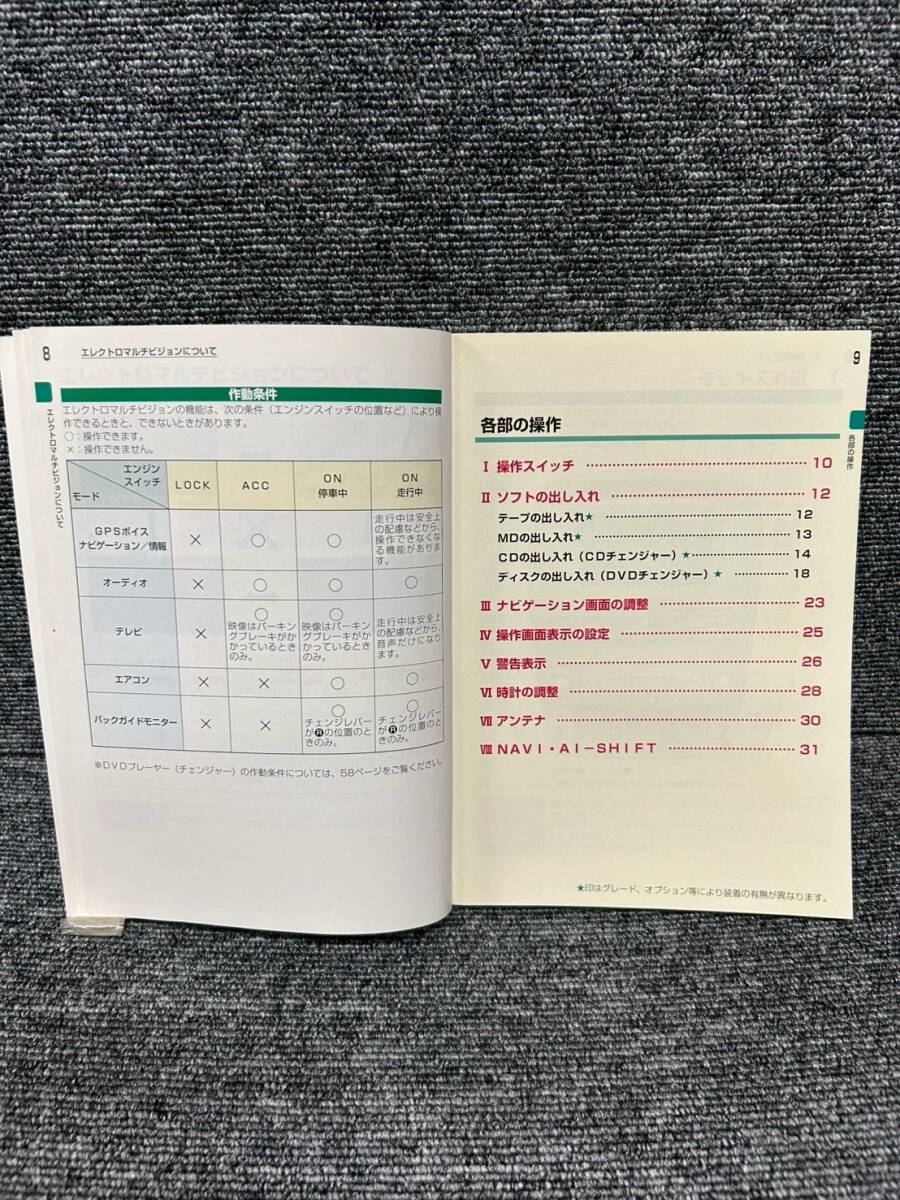 8
エレクトロマルチビジョンについて
エレクトロマルチビジョンについて
作動条件
エレクトロマルチビジョンの機能は、次の条件（エンジンスイッチの位置など）により操
作できるときと、できないときがあります。
○：操作できます。
×：操作できません。
エンジン
スイッチ
モード
LOCK
ACC
ON
停車中
ON
走行中
GPSボイス
ナビゲーション／情報
×
○
○
走行中は安全上
の配慮などから、
操作できなくな
る機能がありま
す。
オーディオ
×
○
○
○
テレビ
×
○
映像はパーキン
グブレーキがか
かっているとき
のみ。
○
映像はパーキン
グブレーキがか
かっているとき
のみ。
走行中は安全上
の配慮などから、
音声だけになり
ます。
エアコン
×
×
○
○
バックガイドモニター
×
×
○
チェンジレバー
がRの位置のと
きのみ。
○
チェンジレバー
がRの位置のと
きのみ。
※DVDプレーヤー（チェンジャー）の作動条件については、58ページをご覧ください。
9
各部の操作
各部の操作
Ⅰ 操作スイッチ 10
Ⅱ ソフトの出し入れ 12
テープの出し入れ★ 12
MDの出し入れ★ 13
CDの出し入れ（CDチェンジャー）★ 14
ディスクの出し入れ（DVDチェンジャー）★ 18
Ⅲ ナビゲーション画面の調整 23
Ⅳ 操作画面表示の設定 25
Ⅴ 警告表示 26
Ⅵ 時計の調整 28
Ⅶ アンテナ 30
Ⅷ NAVI・AI−SHIFT 31
★印はグレード、オプション等により装着の有無が異なります。